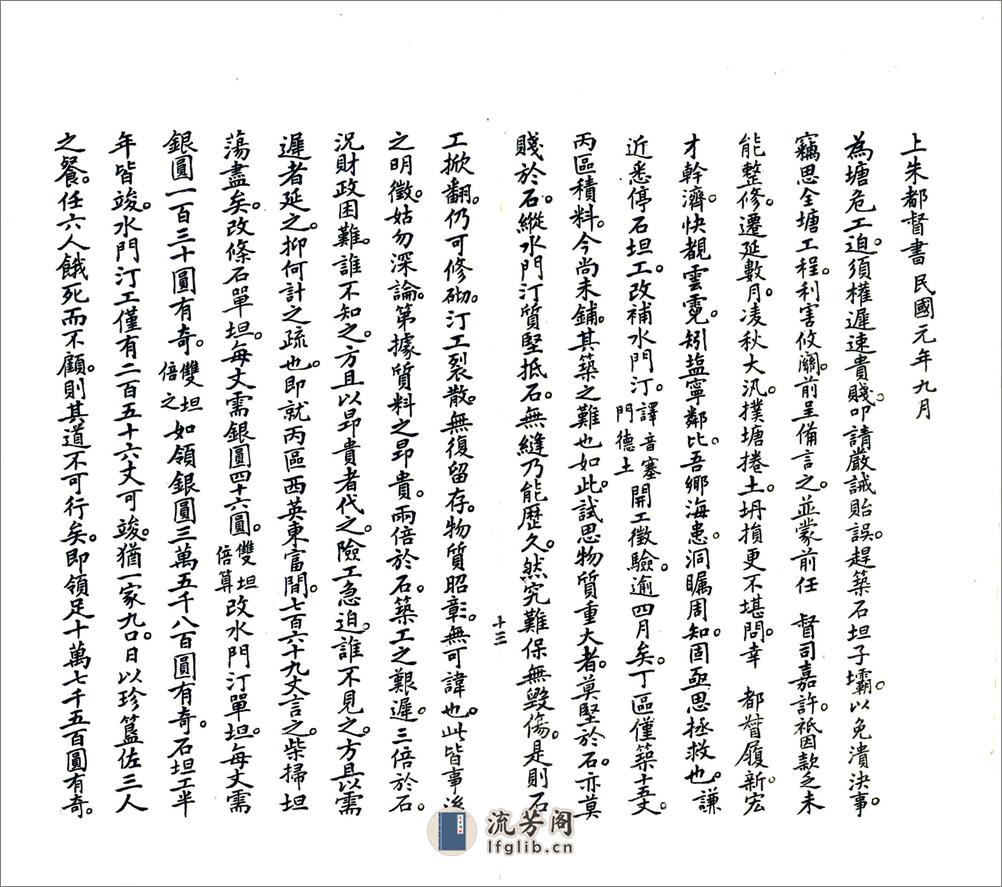 上朱都督書 民國元年九月
為塘危工迫。須權遲速貴賤。叩請嚴誡貽誤。趕築石坦子壩。以免潰決事。
竊思全塘工程。利害攸關。前呈備言之。並蒙前任 督司嘉許。祇因款乏未
能整修。遷延數月。凌秋大汛。撲塘捲土。坍損更不堪問。幸 都督履新。宏
才幹濟。快覩雲霓。矧塩寧鄰比。吾鄉海患。洞矚周知。固亟思拯救也。謙
近悉停石坦工。改補水門汀。譯音塞門德土開工徵驗。逾四月矣。丁區僅築十五丈。
丙區積料。今尚未鋪。其築之難也如此。試思物質重大者。莫堅於石。亦莫
賤於石。縱水門汀質堅抵石。無縫乃能歷久。然究難保無毀傷。是則石
十三
工掀翻。仍可修砌。汀工裂散。無復留存。物質昭彰。無可諱也。此皆事後
之明徵。姑勿深論。第據質料之昂貴。兩倍於石。築工之艱遲。三倍於石。
況財政困難。誰不知之。方且以昂貴者代之。險工急迫。誰不見之。方且以需
遲者延之。抑何計之疏也。即就丙區西英東富間。七百六十九丈言之。柴掃坦
蕩盡矣。改條石單坦。每丈需銀圓四十六圓。雙坦倍算改水門汀單坦。每丈需
銀圓一百三十圓有奇。雙坦倍之如領銀圓三萬五千八百圓有奇。石坦工半
年皆竣。水門汀工僅有二百五十六丈可竣。猶一家九口。日以珍簋佐三人
之餐。任六人餓死而不顧。則其道不可行矣。即領足十萬七千五百圓有奇。
流芳阁
lfglib.cn